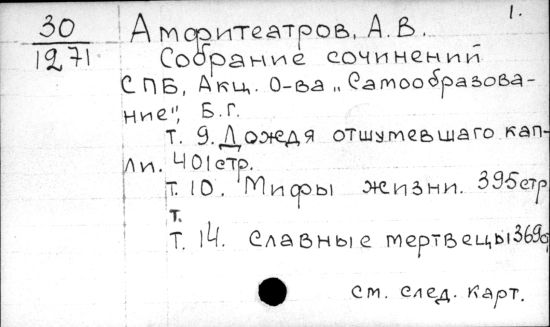 1.
30 Амфитеатров, А.В.
1271 Собрание сочинений
СПБ, Акц. О-ва „Самообразова-
ние", Б.г.
т. 9. Дождя отшумевшаго кап-
ли. 401стр.
т. 10. Мифы жизни. 395стр
т.
т. 14. Славные мертвецы 369с
см. след. карт.